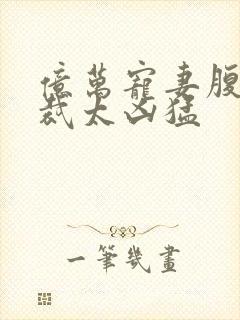 億萬寵妻腹
裁太凶猛
一筆幾畫